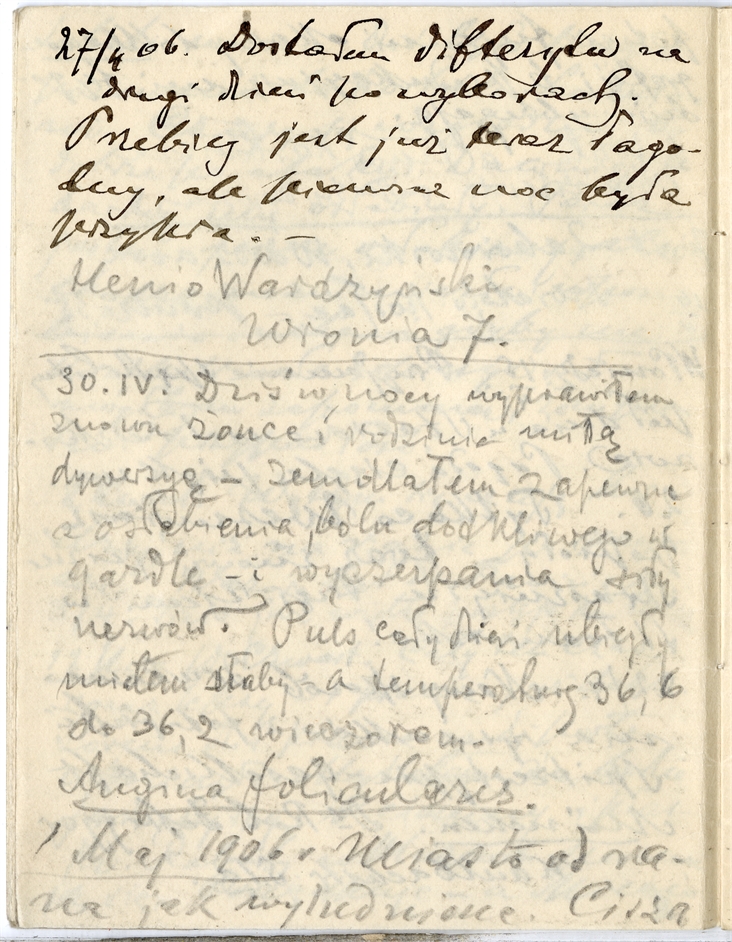 27/4 06. Dostałem dyfterytu na
drugi dzień po wyborach.
Przebieg jest już teraz łago-
dny, ale pierwsza noc była
przykra. —
Henio Wardzyński
Wronia 7.
30. IV. Dziś w nocy wyprawiłem
znowu żonce i rodzinie miłą
dywersyę – zemdlałem zapewne
z osłabienia, bólu dotkliwego w
gardle – i wyczerpania siły
nerwów. Puls cały dzień ubiegły
miałem słaby – a temperaturę 36,6
do 36,2 wieczorem.
Angina folicularis.
1 Maj 1906. Miasto od ra-
na jak wyludnione. Cisza